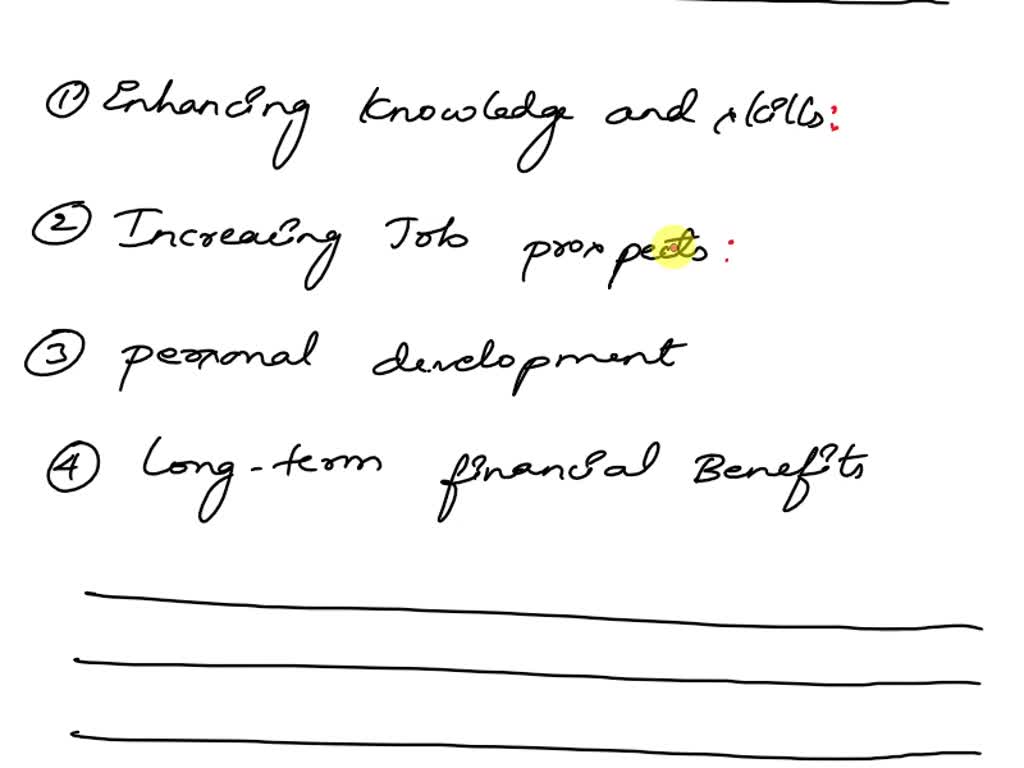 ① Enhancing knowledge and skills:
② Increasing Job prospects:
③ personal development
④ Long-term financial Benefits